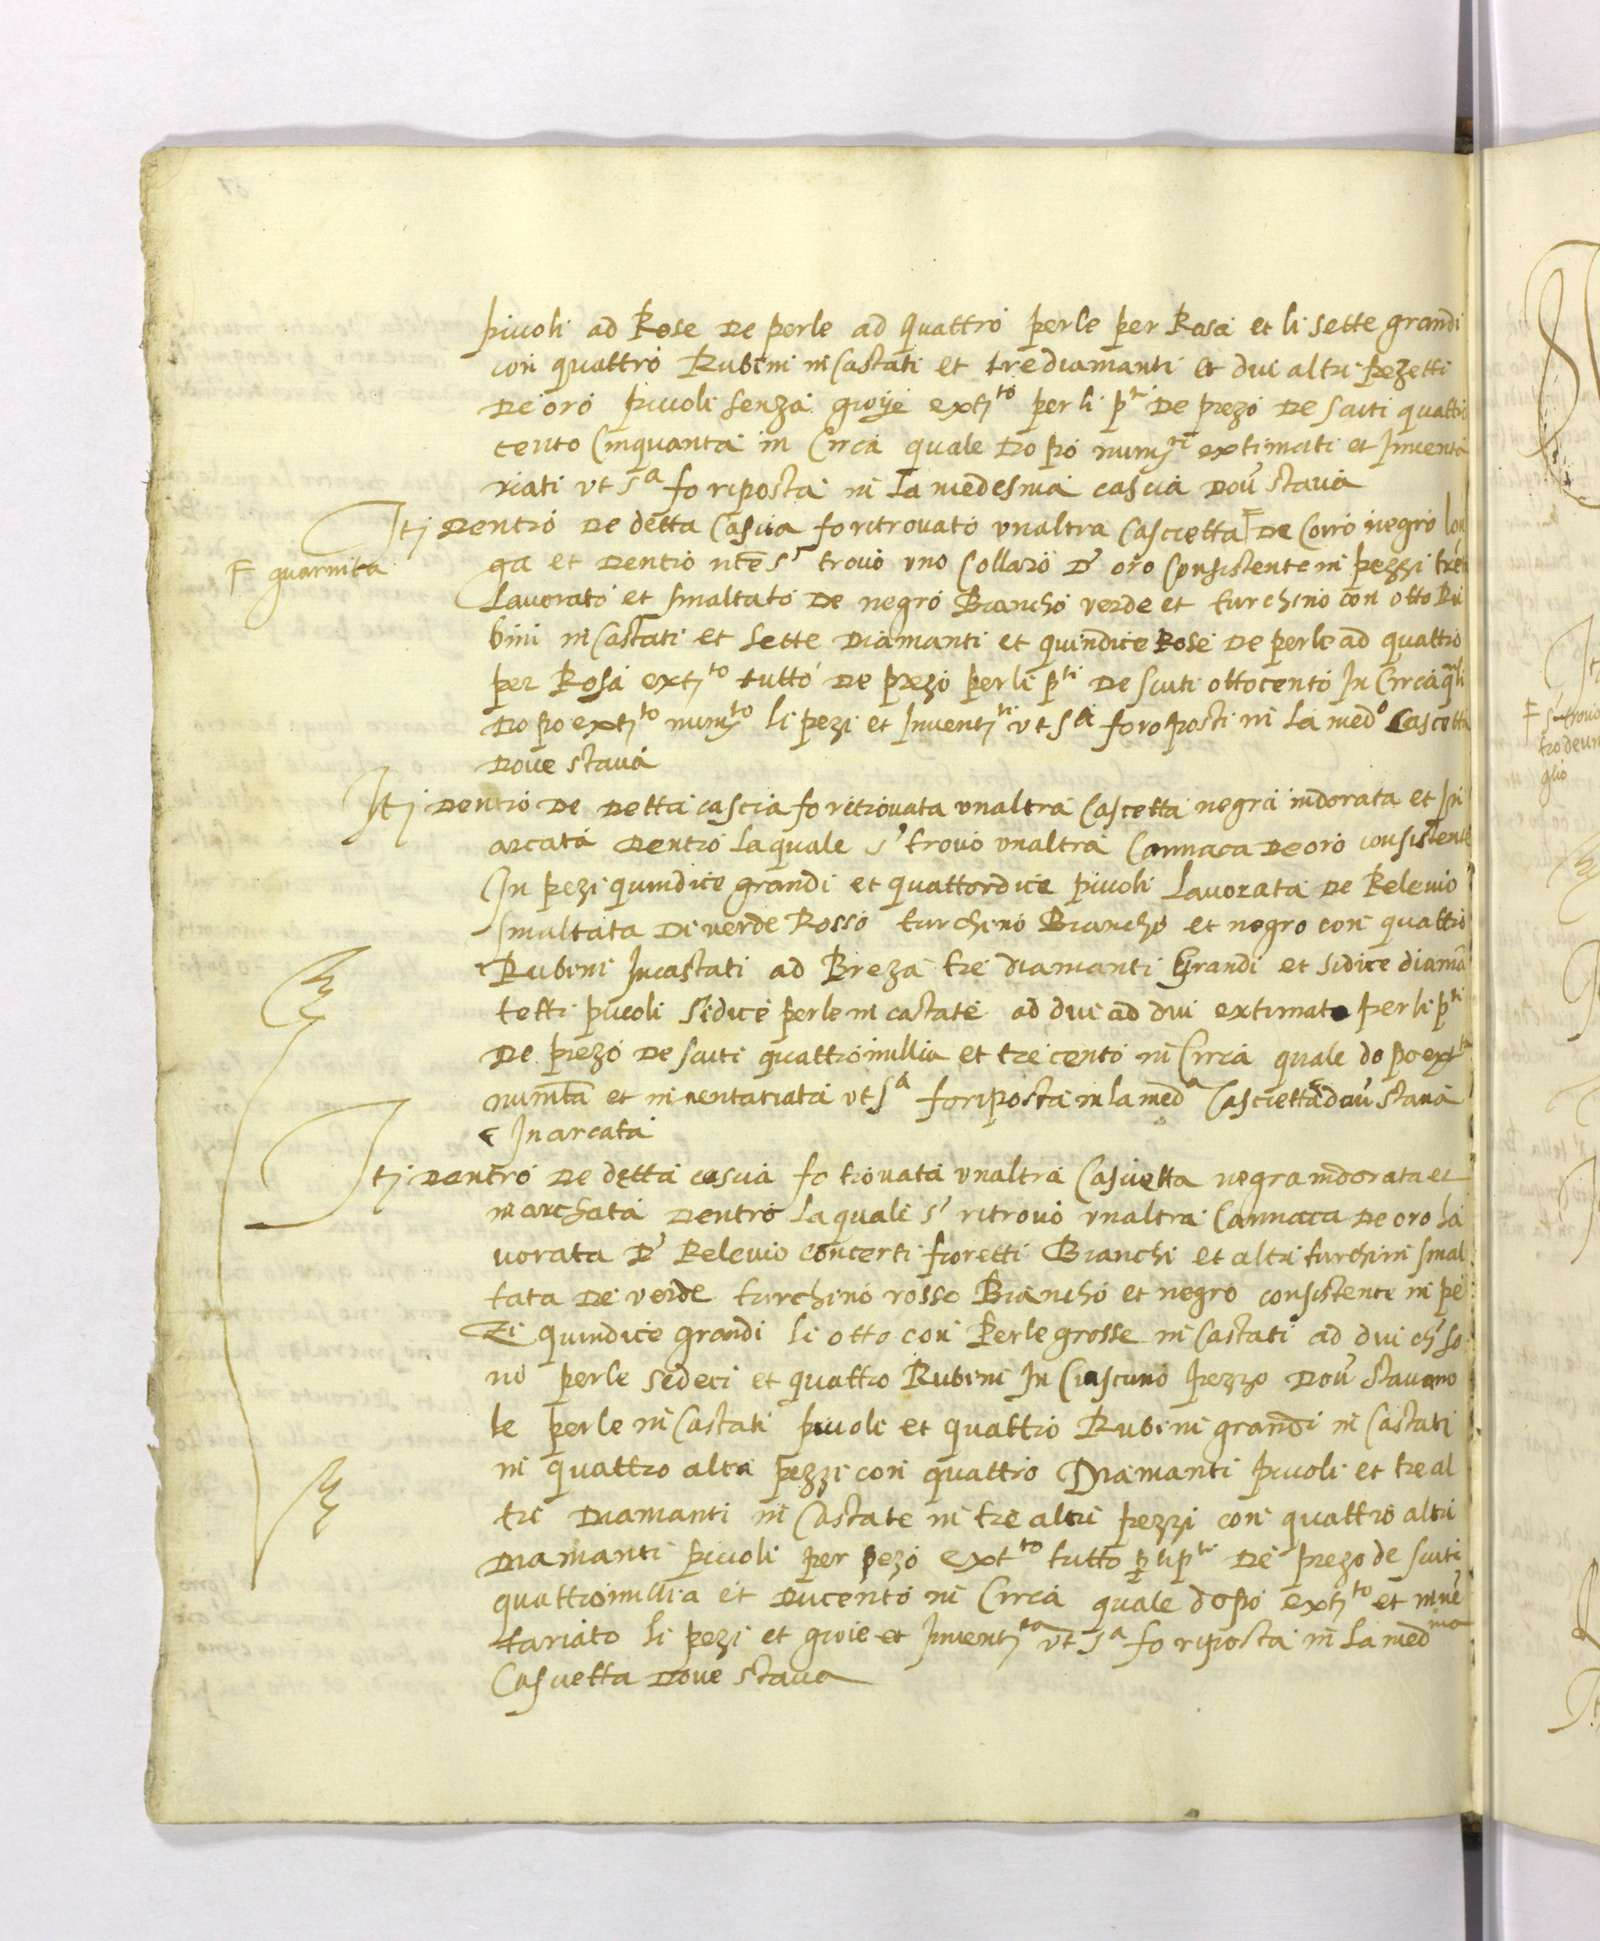 piccoli ad Rose de perle ad quattro perle per Rosa et li sette grandi
con quattro Rubini incastati et tre diamanti et dui altri pezetti
de oro piccoli senza gioije extj.to per li p.ti de prezo de scuti quattro
cento Cinquanta in Circa quale dopo numj.ti extimati et Inventa
riati ut s.a fo riposta in la medesma cascia dov' stava
Itj dentro de detta Cascia fo ritrovato un altra Cascietta F de Coiro negro lon
F guarnita
ga et dentro nce s' trovò uno Collaro d' oro Consistente in pezzi tre
Lavorato et smaltato de negro Biancho verde et turchino con otto Ru
bini incastati et sette diamanti et quindice Rose de perle ad quattro
per Rosa extj.to tutto de prezo per li p.ti de scuti ottocento In Circa q.li
dopo extj.to numj.to li pezi et Inventj.ti ut s.a foro posti in la med.o Cascetta
dove stava
Itj dentro de detta cascia fo ritrovata un altra Cascetta negra indorata et In
arcata dentro la quale s' trovò un altra Cannaca de oro consistente
In pezi quindice grandi et quattordice piccoli Lavorata de Relevio
smaltata di verde Rosso turchino Biancho et negro con quattro
Rubini Incastati ad Breza tre diamanti Grandi et sidice diamā
tetti piccoli sidice perle incastate ad dui ad dui extimato per li p.ti
de prezo de scuti quattromillia et trecento in Circa quale dopo ext.ta
num̄ta et inventariata ut s.a fo riposta in la med.a Cascietta dov' stava
Inarcata
Itj dentro de detta cascia fo trovata un altra Cascietta negra indorata et
inarchata dentro la quale s' ritrovò un altra Cannaca de oro la
vorata d' Relevio con certi fioretti Bianchi et altri turchini smal
tata de verde turchino rosso Biancho et negro consistente in pe
zi quindice grandi li otto con Perle grosse incastati ad dui ch' so
no perle sedeci et quattro Rubini In Ciascuno Pezzo dov' stavano
le perle incastati piccoli et quattro Rubini grandi incastati
in quattro altri pezzi con quattro Diamanti piccoli et tre al
tri diamanti incastate in tre altri pezzi con quattro altri
diamanti piccoli per pezo ext.to tutto p li p.ti de prezo de scuti
quattromillia et ducento in Circa quale dopo extj.to et invē
tariato li pezi et gioie et Inventj.ta ut s.a fo riposta in la med.ma
Cascietta dove stava